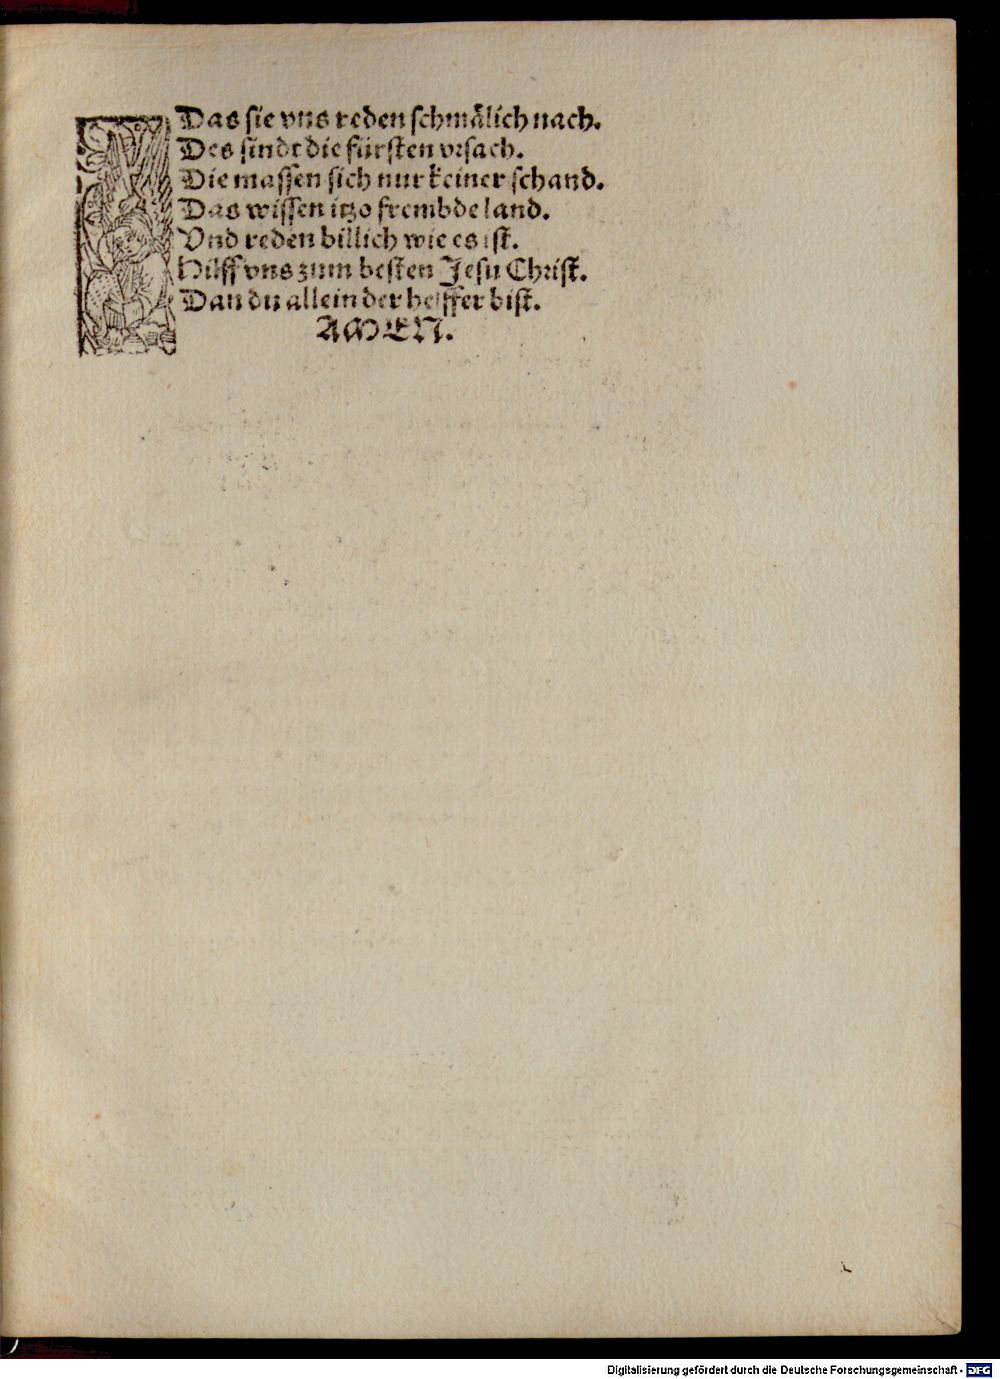 Das sie vns reden schmälich nach.
Des sindt die fürsten vrsach.
Die massen sich nur keiner schand.
Das wissen itzo frembde land.
Vnd reden billich wie es ist.
Hilff vns zum besten Jesu Christ.
Dan du allein der helffer bist.
AMEN.
Digitalisierung gefördert durch die Deutsche Forschungsgemeinschaft - DFG